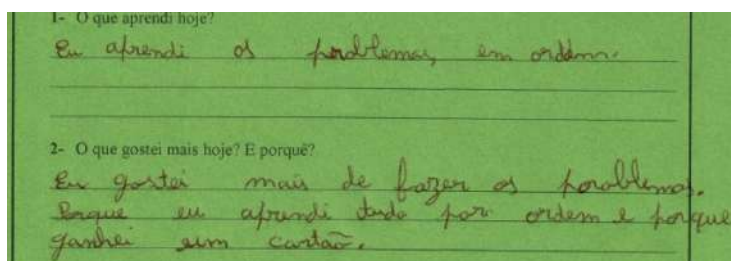 1- O que aprendi hoje?
Eu aprendi os problemas, em ordem.
2- O que gostei mais hoje? E porquê?
Eu gostei mais de fazer os poroblemas.
Porque eu aprendi tudo por ordem e porque
ganhei um cartão.